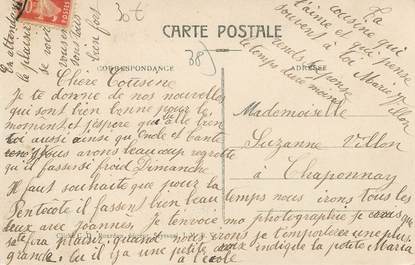 30t
38
CARTE POSTALE
CORRESPONDANCE
ADRESSE
En attendant
le plaisir
de se voir
vous
bien fort
Ta
cousine qui
t'aime et qui pense
souvent à toi Marie Villon
réponse
le temps dure moins
Chère Cousine
Je te donne de nos nouvelles
qui sont bien bonne pour le
moment, et j'espère que
toi aussi ainsi qu'Oncle et tante
nous avons beaucoup regretté
qu'il fasse si froid Dimanche
Il faut souhaité que pour la
Pentecôte il fassent bien beau temps nous irons tous les
deux avec Joannès. Je t'envoie ma photographie je crois que
sa te fera plaisir, quand nous irons je t'emporterai une plus
grande, tu il y a une petite croix indique la petite Maria
à l'école
Mademoiselle
Suzanne Villon
à Chaponnay